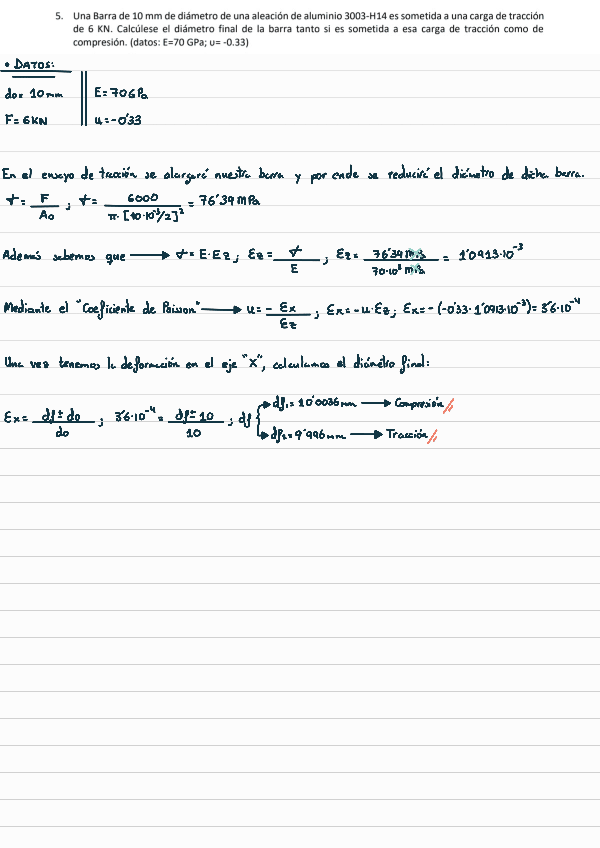 5. Una Barra de 10 mm de diámetro de una aleación de aluminio 3003-H14 es sometida a una carga de tracción
de 6 KN. Calcúlese el diámetro final de la barra tanto si es sometida a esa carga de tracción como de
compresión. (datos: E=70 GPa; υ= -0.33)
• DATOS:
do= 10mm E=70GPa
F=6KN u=-0'33
En el ensayo de tracción se alargará nuestra barra y por ende se reducirá el diámetro de dicha barra.
σ= F/Ao ; σ= 6000/π·[10·10⁻³/2]² = 76'39 MPa
Además sabemos que → σ=E·Ez ; Ez= σ/E ; Ez= 76'39 MPa/70·10³ MPa = 1'0913·10⁻³
Mediante el "Coeficiente de Poisson" → u= - Ex/Ez ; Ex=-u·Ez ; Ex=-(-0'33·1'0913·10⁻³)=3'6·10⁻⁴
Una vez tenemos la deformación en el eje "X", calculamos el diámetro final:
Ex= df±do/do ; 3'6·10⁻⁴= df±10/10 ; df { df₁=10'0036mm → Compresión //
df₂=9'996mm → Tracción //